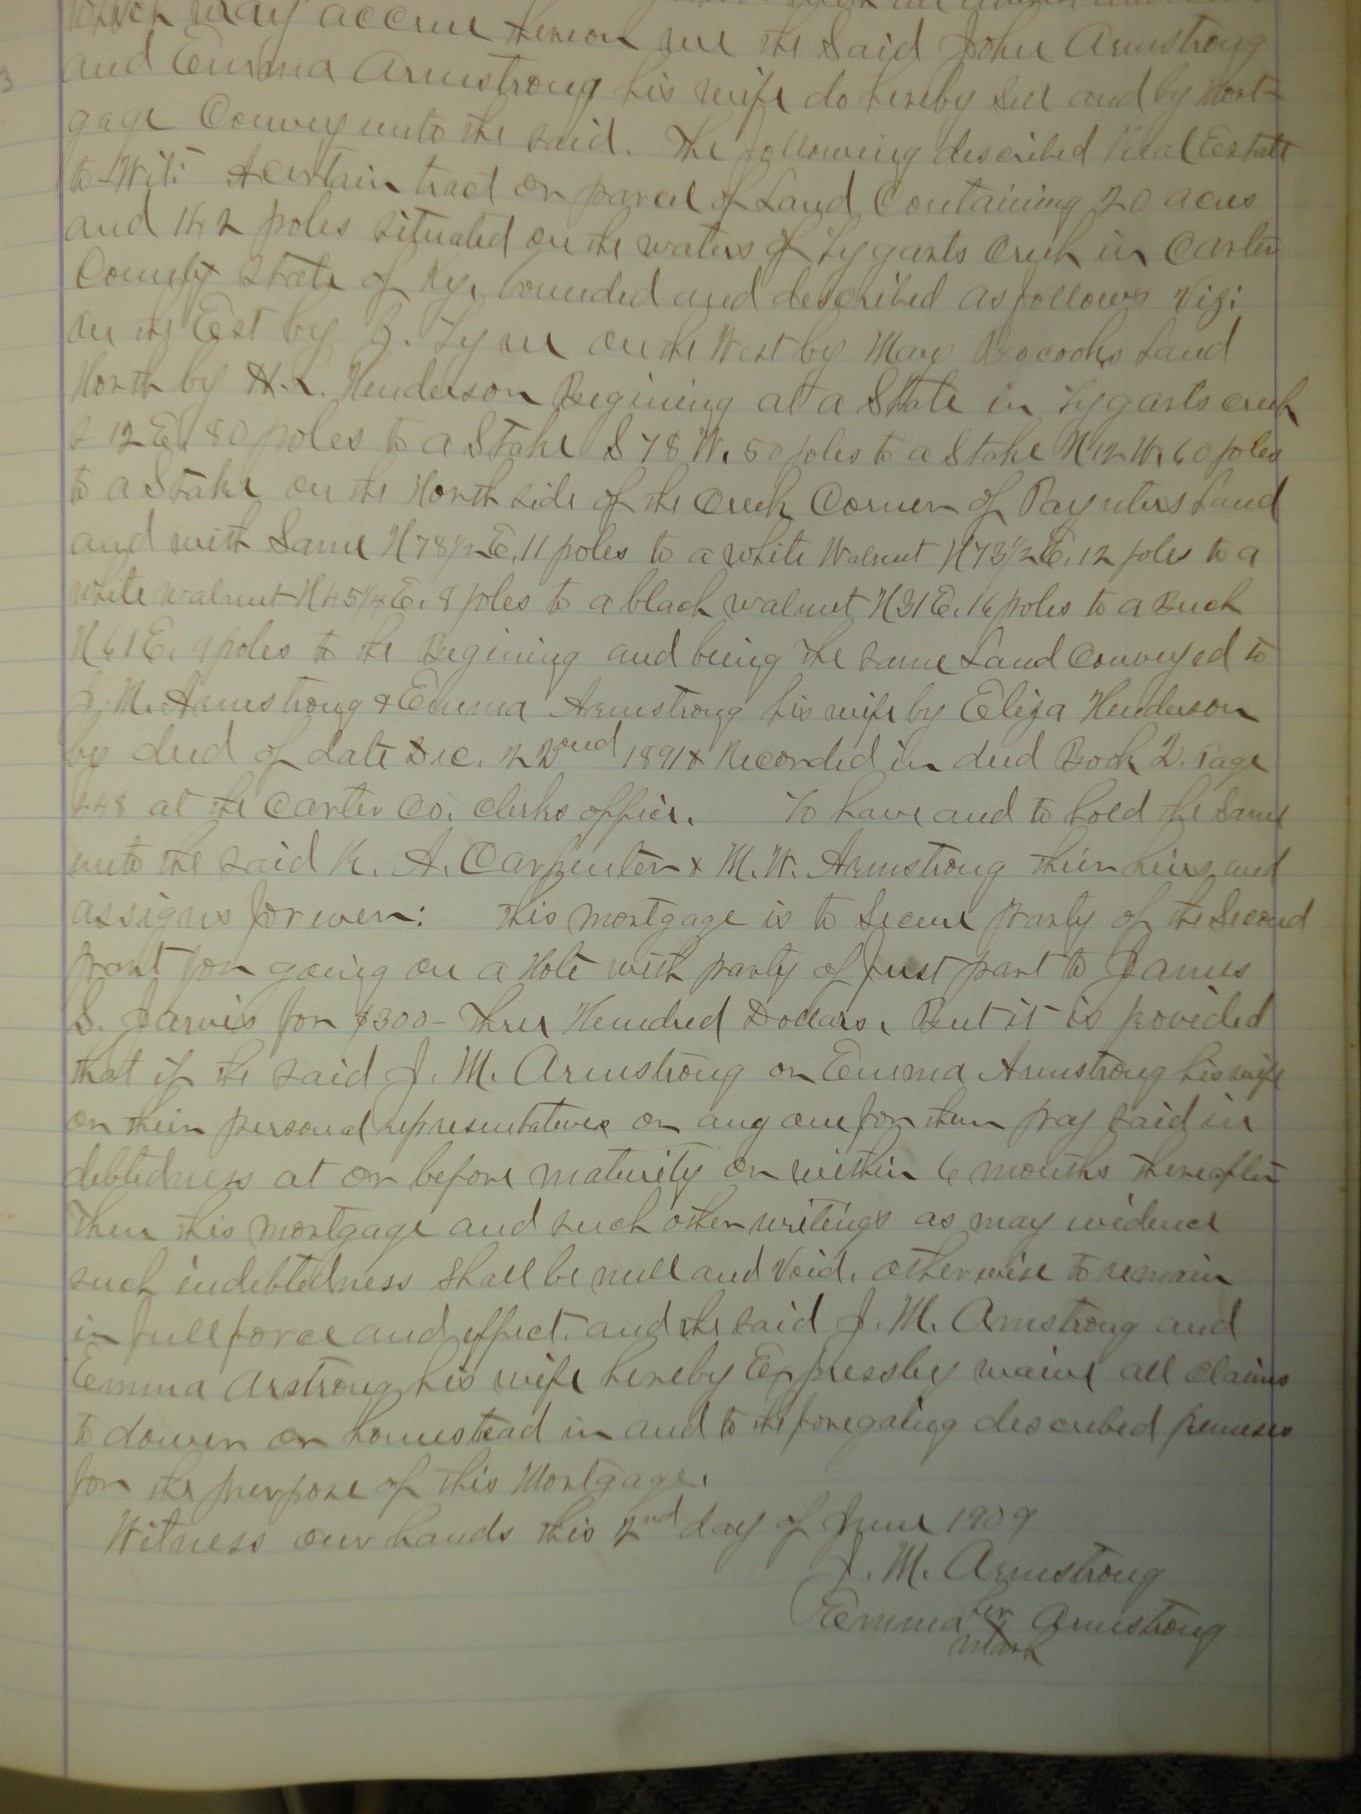 which may accrue thereon we the Said John Armstrong
and Emma Armstrong his wife do hereby Sell and by Mort-
gage Convey unto the said. The following described Real Estate
to-Wit: A certain tract or parcel of Land Containing 20 acres
and 142 poles situated on the waters of Tygarts Creek in Carter
County State of Ky, bounded and described as follows Viz:
on the Est by J. on the West by Land
North by H.L. Henderson Begining at a State in Tygarts creek
S 12 E. 80 poles to a Stake S 78 W. 50 poles to a Stake N 12 W. 60 poles
to a Stake on the North side of the Creek Corner of Paynters Land
and with Same N 78 1/2 E. 11 poles to a white Walnut N 73 1/2 E. 12 poles to a
white walnut N 45 1/4 E. 8 poles to a black walnut N 31 E. 16 poles to a
N 61 E. 9 poles to the Begining and being the same Land Conveyed to
J. M. Armstrong & Emma Armstrong his wife by Eliza Henderson
by deed of date Dec. 22nd 1891 & Recorded in deed Book 2. Page
448 at the Carter Co. Clerks office. To have and to hold the Same
unto the said K. A. Carpenter & M. W. Armstrong their heirs and
assigns forever: This mortgage is to Secure party of the Second
part for going on a Note with party of first part to James
S. Jarvis for $300- Three Hundred Dollars, But it is provided
that if the said J. M. Armstrong or Emma Armstrong his wife
or their personal representatives or any one for them pay said in
debtedness at or before maturity or within 6 months thereafter
Then this mortgage and such other writings as may evidence
such indebtedness shall be null and void, otherwise to remain
in full force and effect. and the said J. M. Armstrong and
Emma Arstrong his wife hereby Expressley waive all claims
to dower or homestead in and to the foregoing described premises
for the purpose of this Mortgage.
Witness our hands this 2nd day of June 1909
J. M. Armstrong
Emma her Armstrong
mark